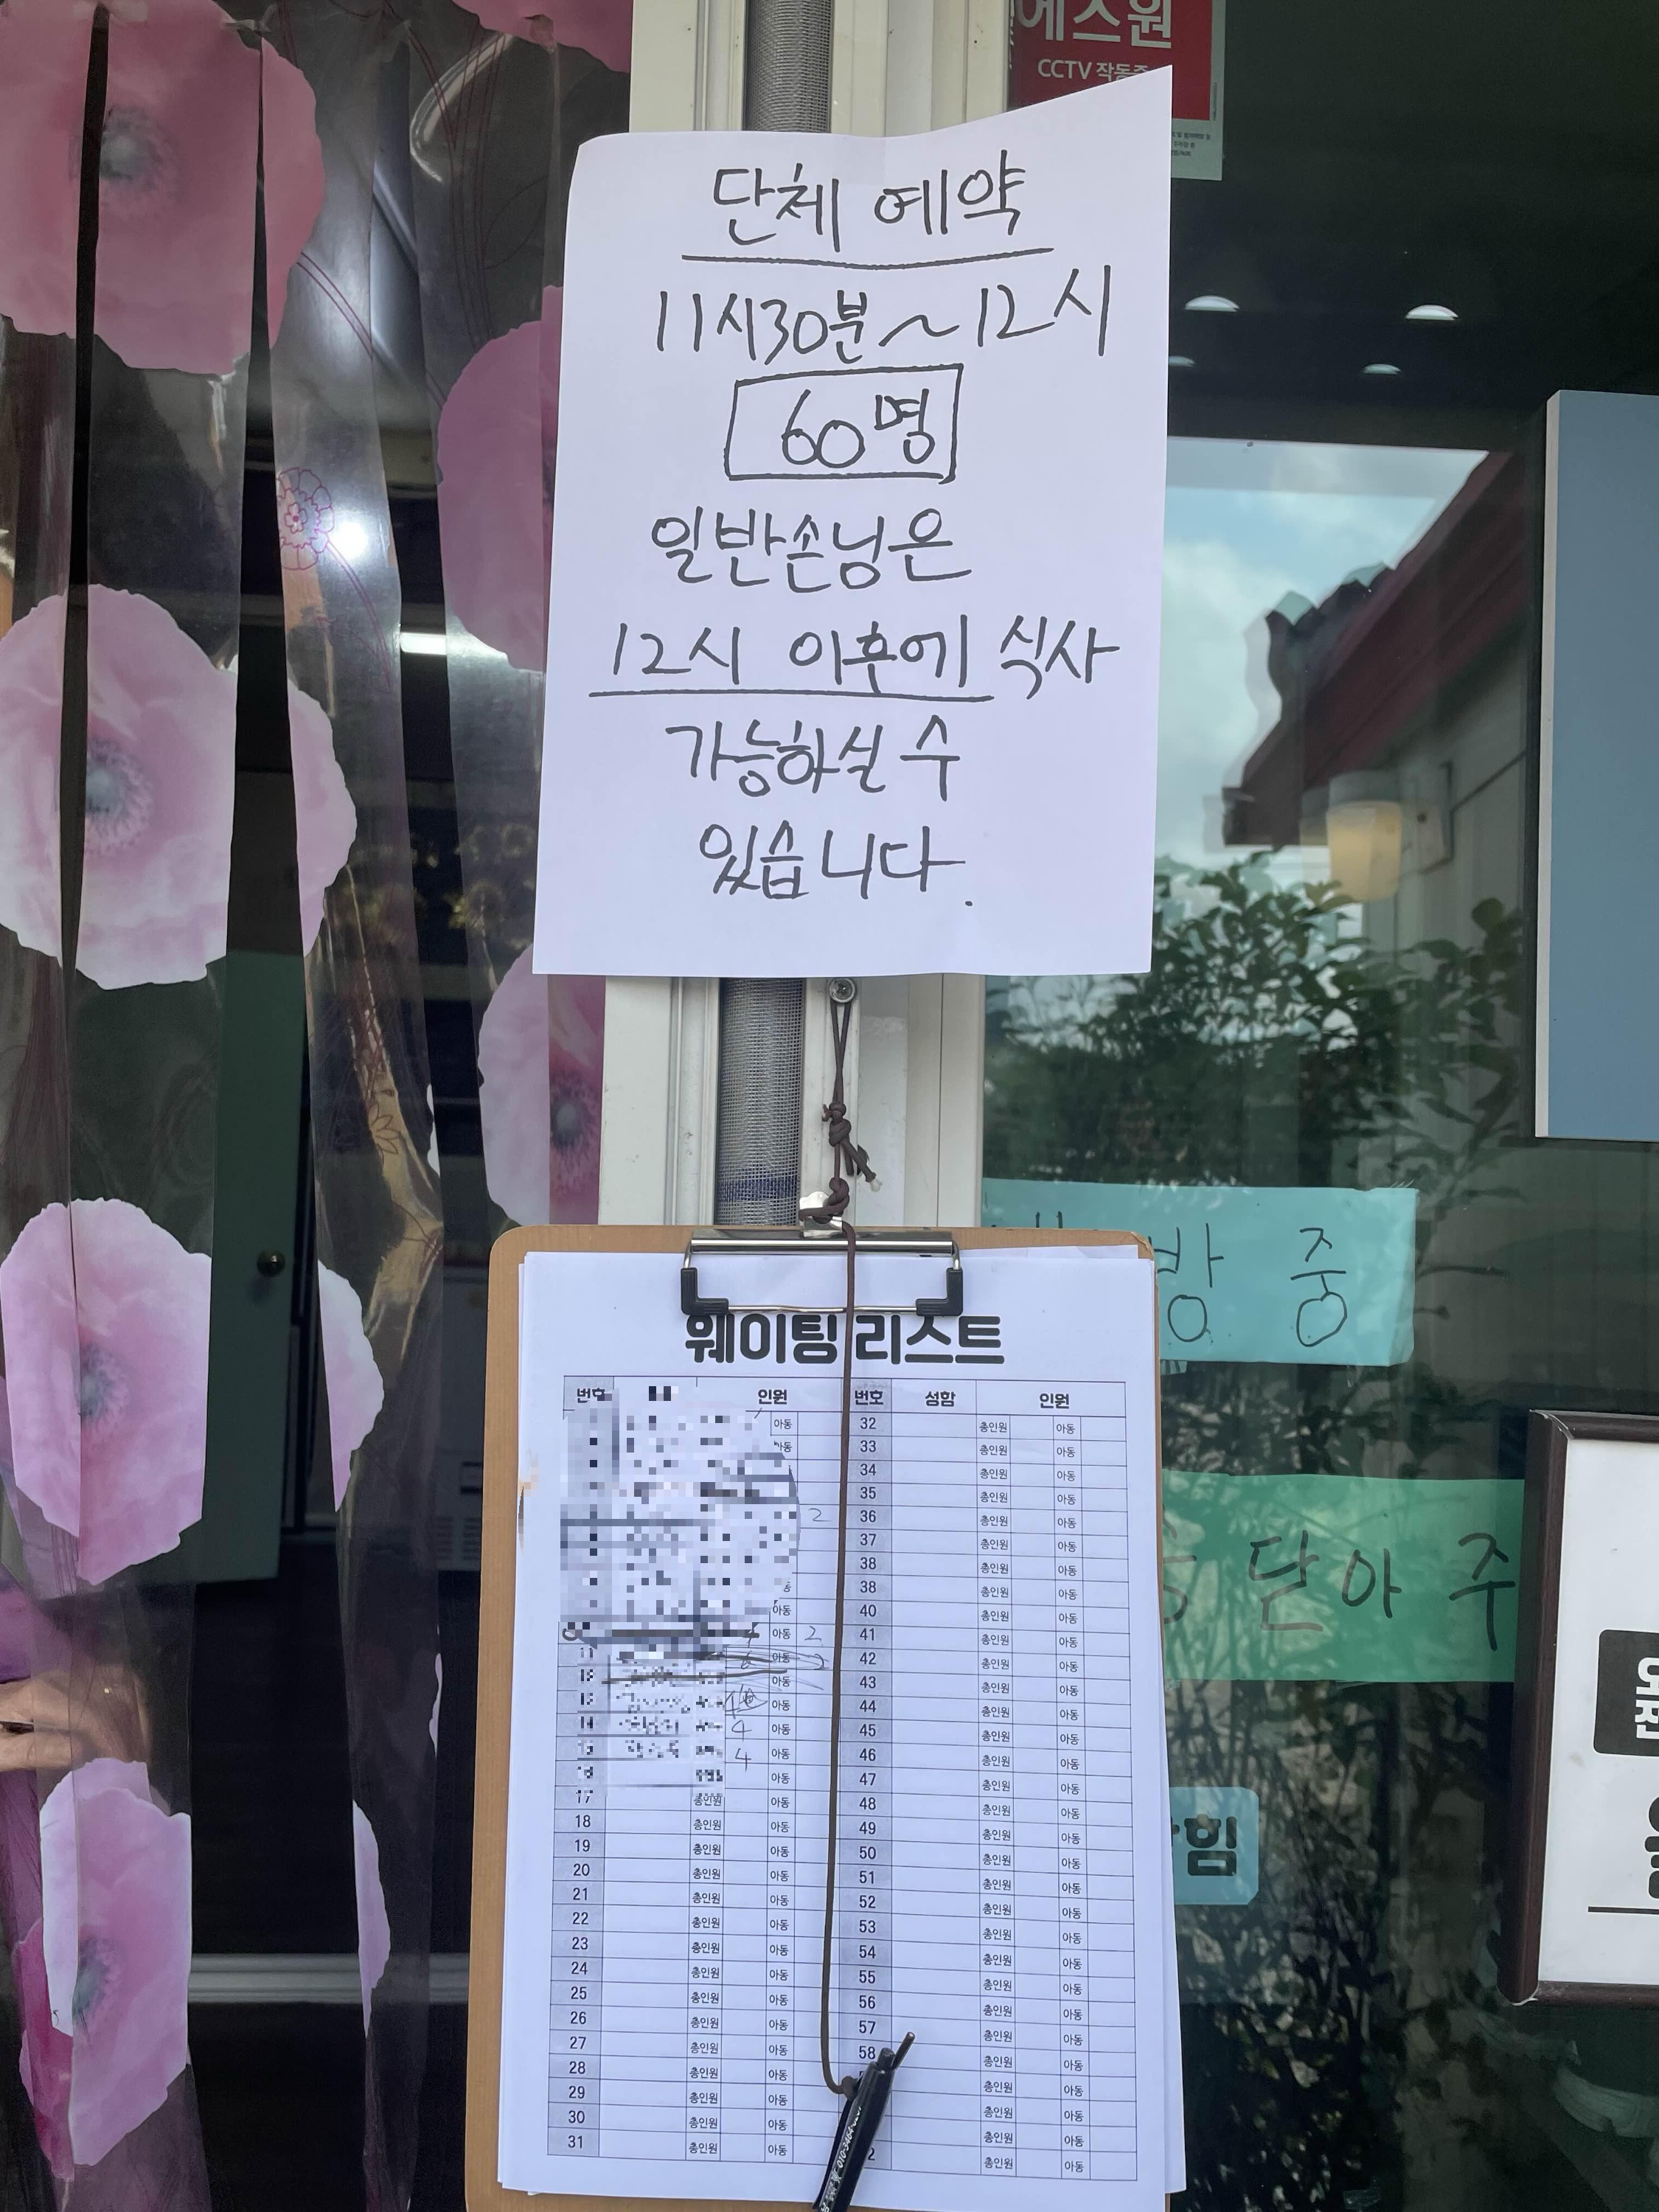 에스원
CCTV 작동중
단체 예약
11시30분~12시
60명
일반손님은
12시 이후에 식사
가능하실 수
있습니다.
방 중
닫아 주
힘
웨이팅 리스트
번호 인원 번호 성함 인원
아동 32 총인원 아동
아동 33 총인원 아동
34 총인원 아동
35 총인원 아동
2 36 총인원 아동
37 총인원 아동
38 총인원 아동
38 총인원 아동
아동 40 총인원 아동
4 아동 2 41 총인원 아동
11 6 아동 2 42 총인원 아동
아동 43 총인원 아동
아동 44 총인원 아동
14 4 아동 45 총인원 아동
4 아동 46 총인원 아동
아동 47 총인원 아동
17 총인원 아동 48 총인원 아동
18 총인원 아동 49 총인원 아동
19 총인원 아동 50 총인원 아동
20 총인원 아동 51 총인원 아동
21 총인원 아동 52 총인원 아동
22 총인원 아동 53 총인원 아동
23 총인원 아동 54 총인원 아동
24 총인원 아동 55 총인원 아동
25 총인원 아동 56 총인원 아동
26 총인원 아동 57 총인원 아동
27 총인원 아동 58 총인원 아동
28 총인원 아동 총인원 아동
29 총인원 아동 총인원 아동
30 총인원 아동 총인원 아동
31 총인원 아동 2 총인원 아동